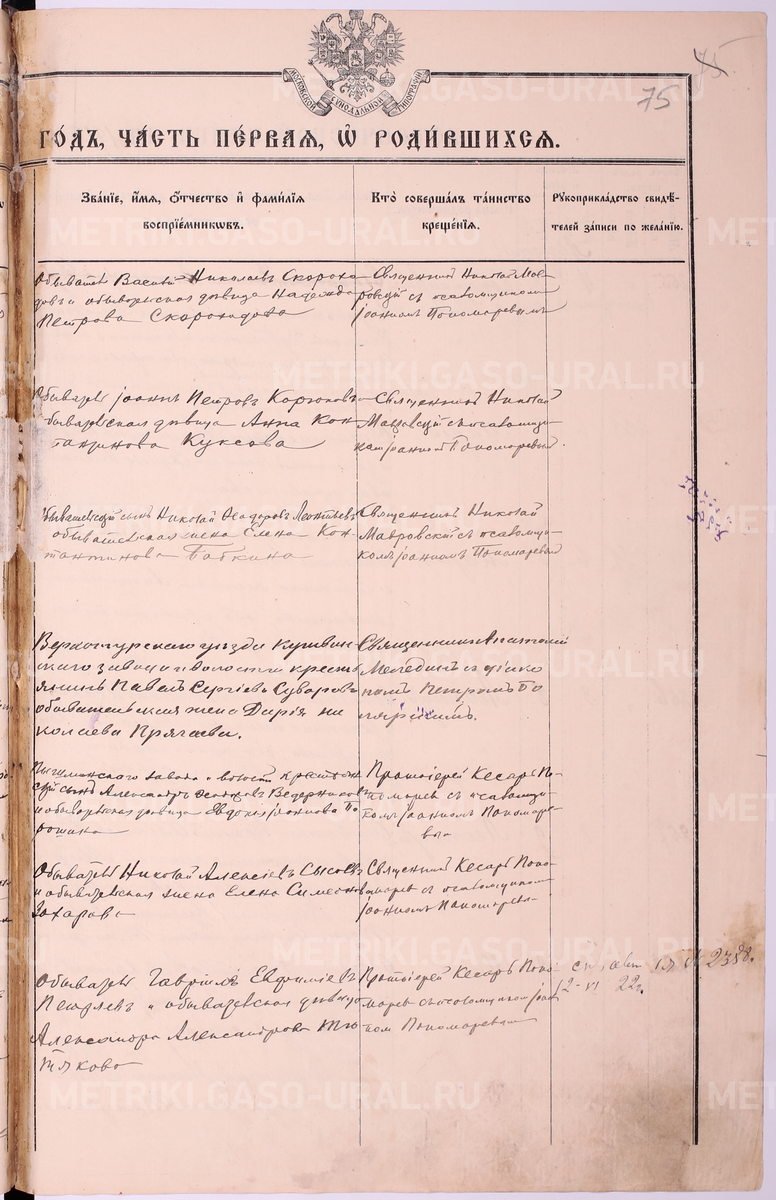 75
75
МОСКОВСКОЙ СѴНОДАЛЬНОЙ ТИПОГРАФІИ
ГОДЪ, ЧАСТЬ ПЕРВАЯ, Ѡ РОДИВШИХСЯ.
Званіе, имя, отчество и фамилія
воспріемниковъ.
Кто совершалъ таинство
крещенія.
Рукоприкладство свидѣ-
телей записи по желанію.
Обыватель Василій Николаевъ Скорохо-
довъ и обывательская дѣвица Надежда
Петрова Скороходова
Священникъ Николай Мав-
ровскій съ псаломщикомъ
Іоанномъ Пономаревымъ
Обыватель Іоаннъ Петровъ
обывательская дѣвица Анна Кон-
стантинова Куксова
Священникъ Николай
Мавровскій съ псаломщи-
комъ Іоанномъ Пономаревымъ
Обывательскій сынъ Николай Ѳеодоровъ Леонтьевъ
обывательская жена Елена Кон-
стантинова Бабкина
Священникъ Николай
Мавровскій съ псаломщи-
комъ Іоанномъ Пономаревымъ
Верхотурскаго уѣзда Кушвин-
скаго завода и волости кресть-
янинъ Павелъ Сергіевъ Суваровъ
обывательская жена Дарія Ни
колаева Пряхаева.
Священникъ Анатолій
съ діако
номъ Петромъ
Пышминскаго завода и волости крестьян-
скій сынъ Александръ Ведерниковъ
и обывательская дѣвица Евдокія Іоаннова По
рошина
Протоіерей Кесарь По-
номаревъ съ псаломщи-
комъ Іоанномъ Пономаре-
вымъ
Обыватель Николай Алексіевъ Сысоевъ
и обывательская жена Елена Симеонова
Захарова
Священникъ Кесарь Поно-
маревъ съ псаломщикомъ
Іоанномъ Пономаревымъ
Обыватель Гавріилъ Евдокимовъ
и обывательская дѣвица
Александра Александрова Тю-
тякова
Протоіерей Кесарь Поно-
маревъ съ псаломщикомъ Іоан-
номъ Пономаревымъ
№ 2388.
12-VI 22г.
METRIKI.GASO-URAL.RU